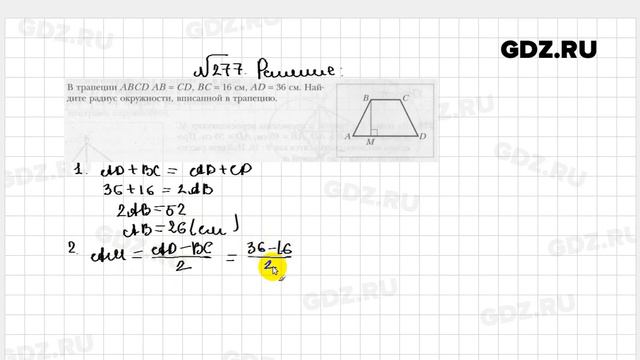 GDZ.RU
№277. Решение:
В трапеции ABCD AB = CD, BC = 16 см, AD = 36 см. Най-
дите радиус окружности, вписанной в трапецию.
B C
A M D
1. AD+BC = AB+CD
36+16 = 2AB
2AB=52
AB=26(см)
2. AM = AD-BC / 2 = 36-16 / 2